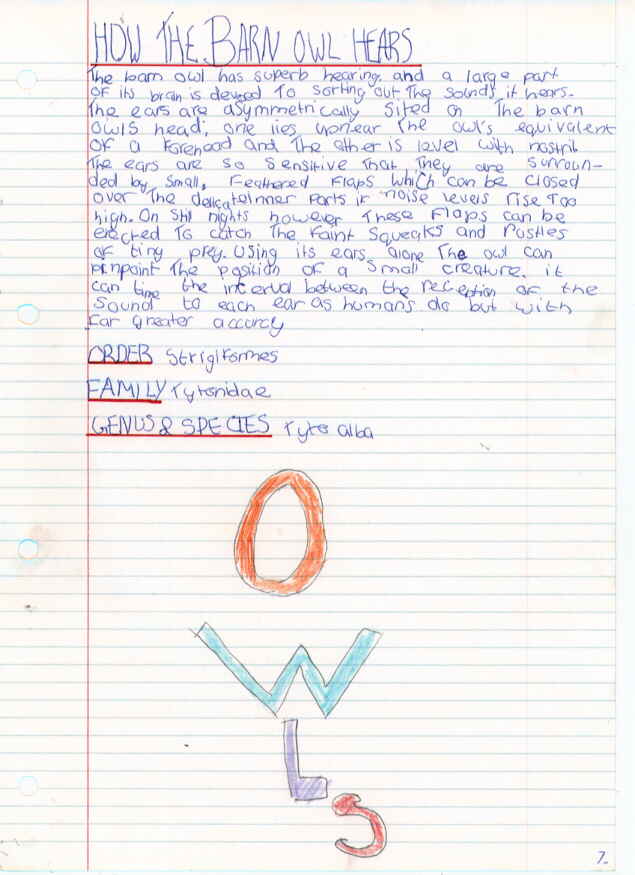 HOW THE BARN OWL HEARS
The barn owl has superb hearing, and a large part
of its brain is devoted to sorting out the sounds it hears.
The ears are asymmetrically sited on the barn
owls head; one lies upnear the owl's equivalent
of a forehead and the other is level with nostril
The ears are so sensitive that they are surroun-
ded by small, feathered flaps which can be closed
over the delicateinner parts if noise levels rise too
high. On still nights however these flaps can be
erected to catch the faint squeaks and rustles
of tiny prey. Using its ears alone the owl can
pinpoint the position of a small creature. it
can time the interval between the reception of the
sound to each ear as humans do but with
far greater accurcy
ORDER Strigiformes
FAMILY Tytonidae
GENUS & SPECIES Tyto alba
O
W
L
S
7.